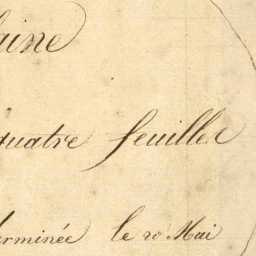 aine
quatre feuilles
terminée le 20 Mai